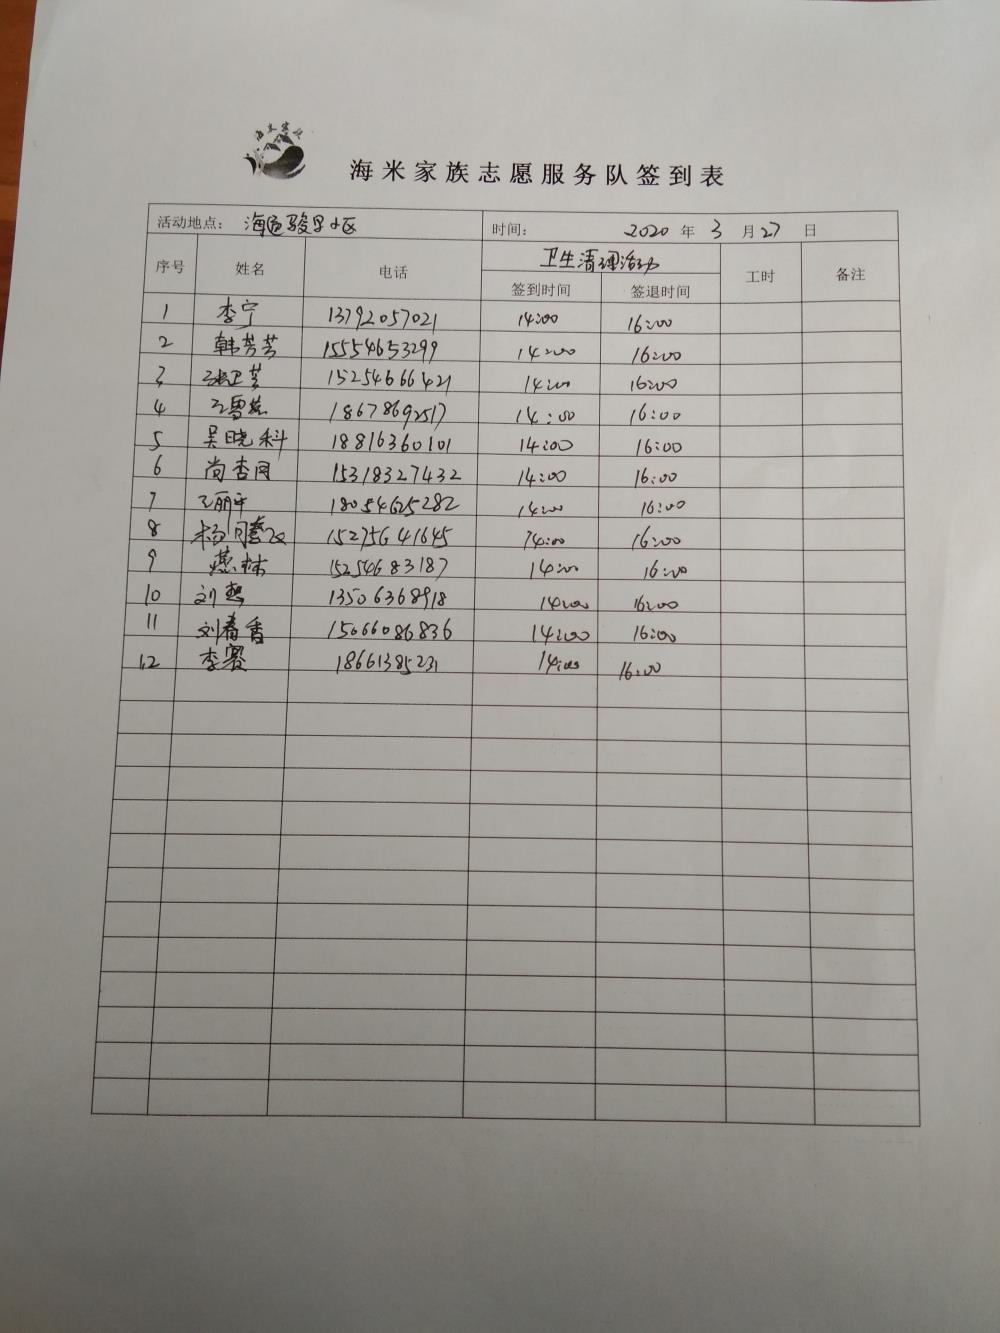 海米家族
海米家族志愿服务队签到表
活动地点: 海通骏景小区 时间: 2020 年 3 月 27 日
序号 姓名 电话 卫生清理活动 工时 备注
签到时间 签退时间
1 李宁 13792057021 14:00 16:00
2 韩芳芳 15554653299 14:00 16:00
3 张卫芳 15254666421 14:00 16:00
4 18678692517 14:00 16:00
5 吴晓科 18816360101 14:00 16:00
6 尚杏同 15318327432 14:00 16:00
7 王丽平 18054625282 14:00 16:00
8 杨 15275641645 14:00 16:00
9 燕林 15254683187 14:00 16:00
10 刘 13506368918 14:00 16:00
11 刘春香 15066086836 14:00 16:00
12 李 18661385231 14:00 16:00